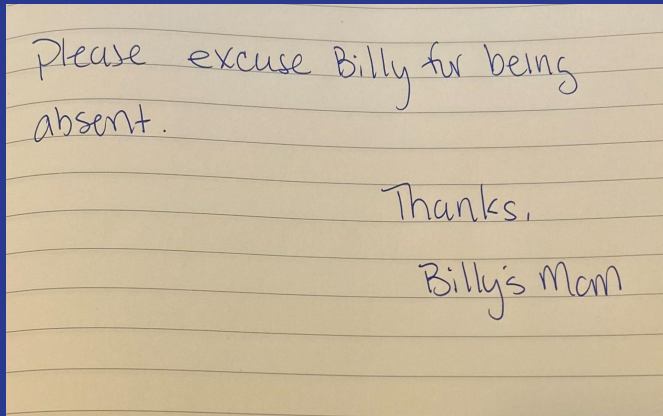 Please excuse Billy for being
absent.
Thanks,
Billy's Mom